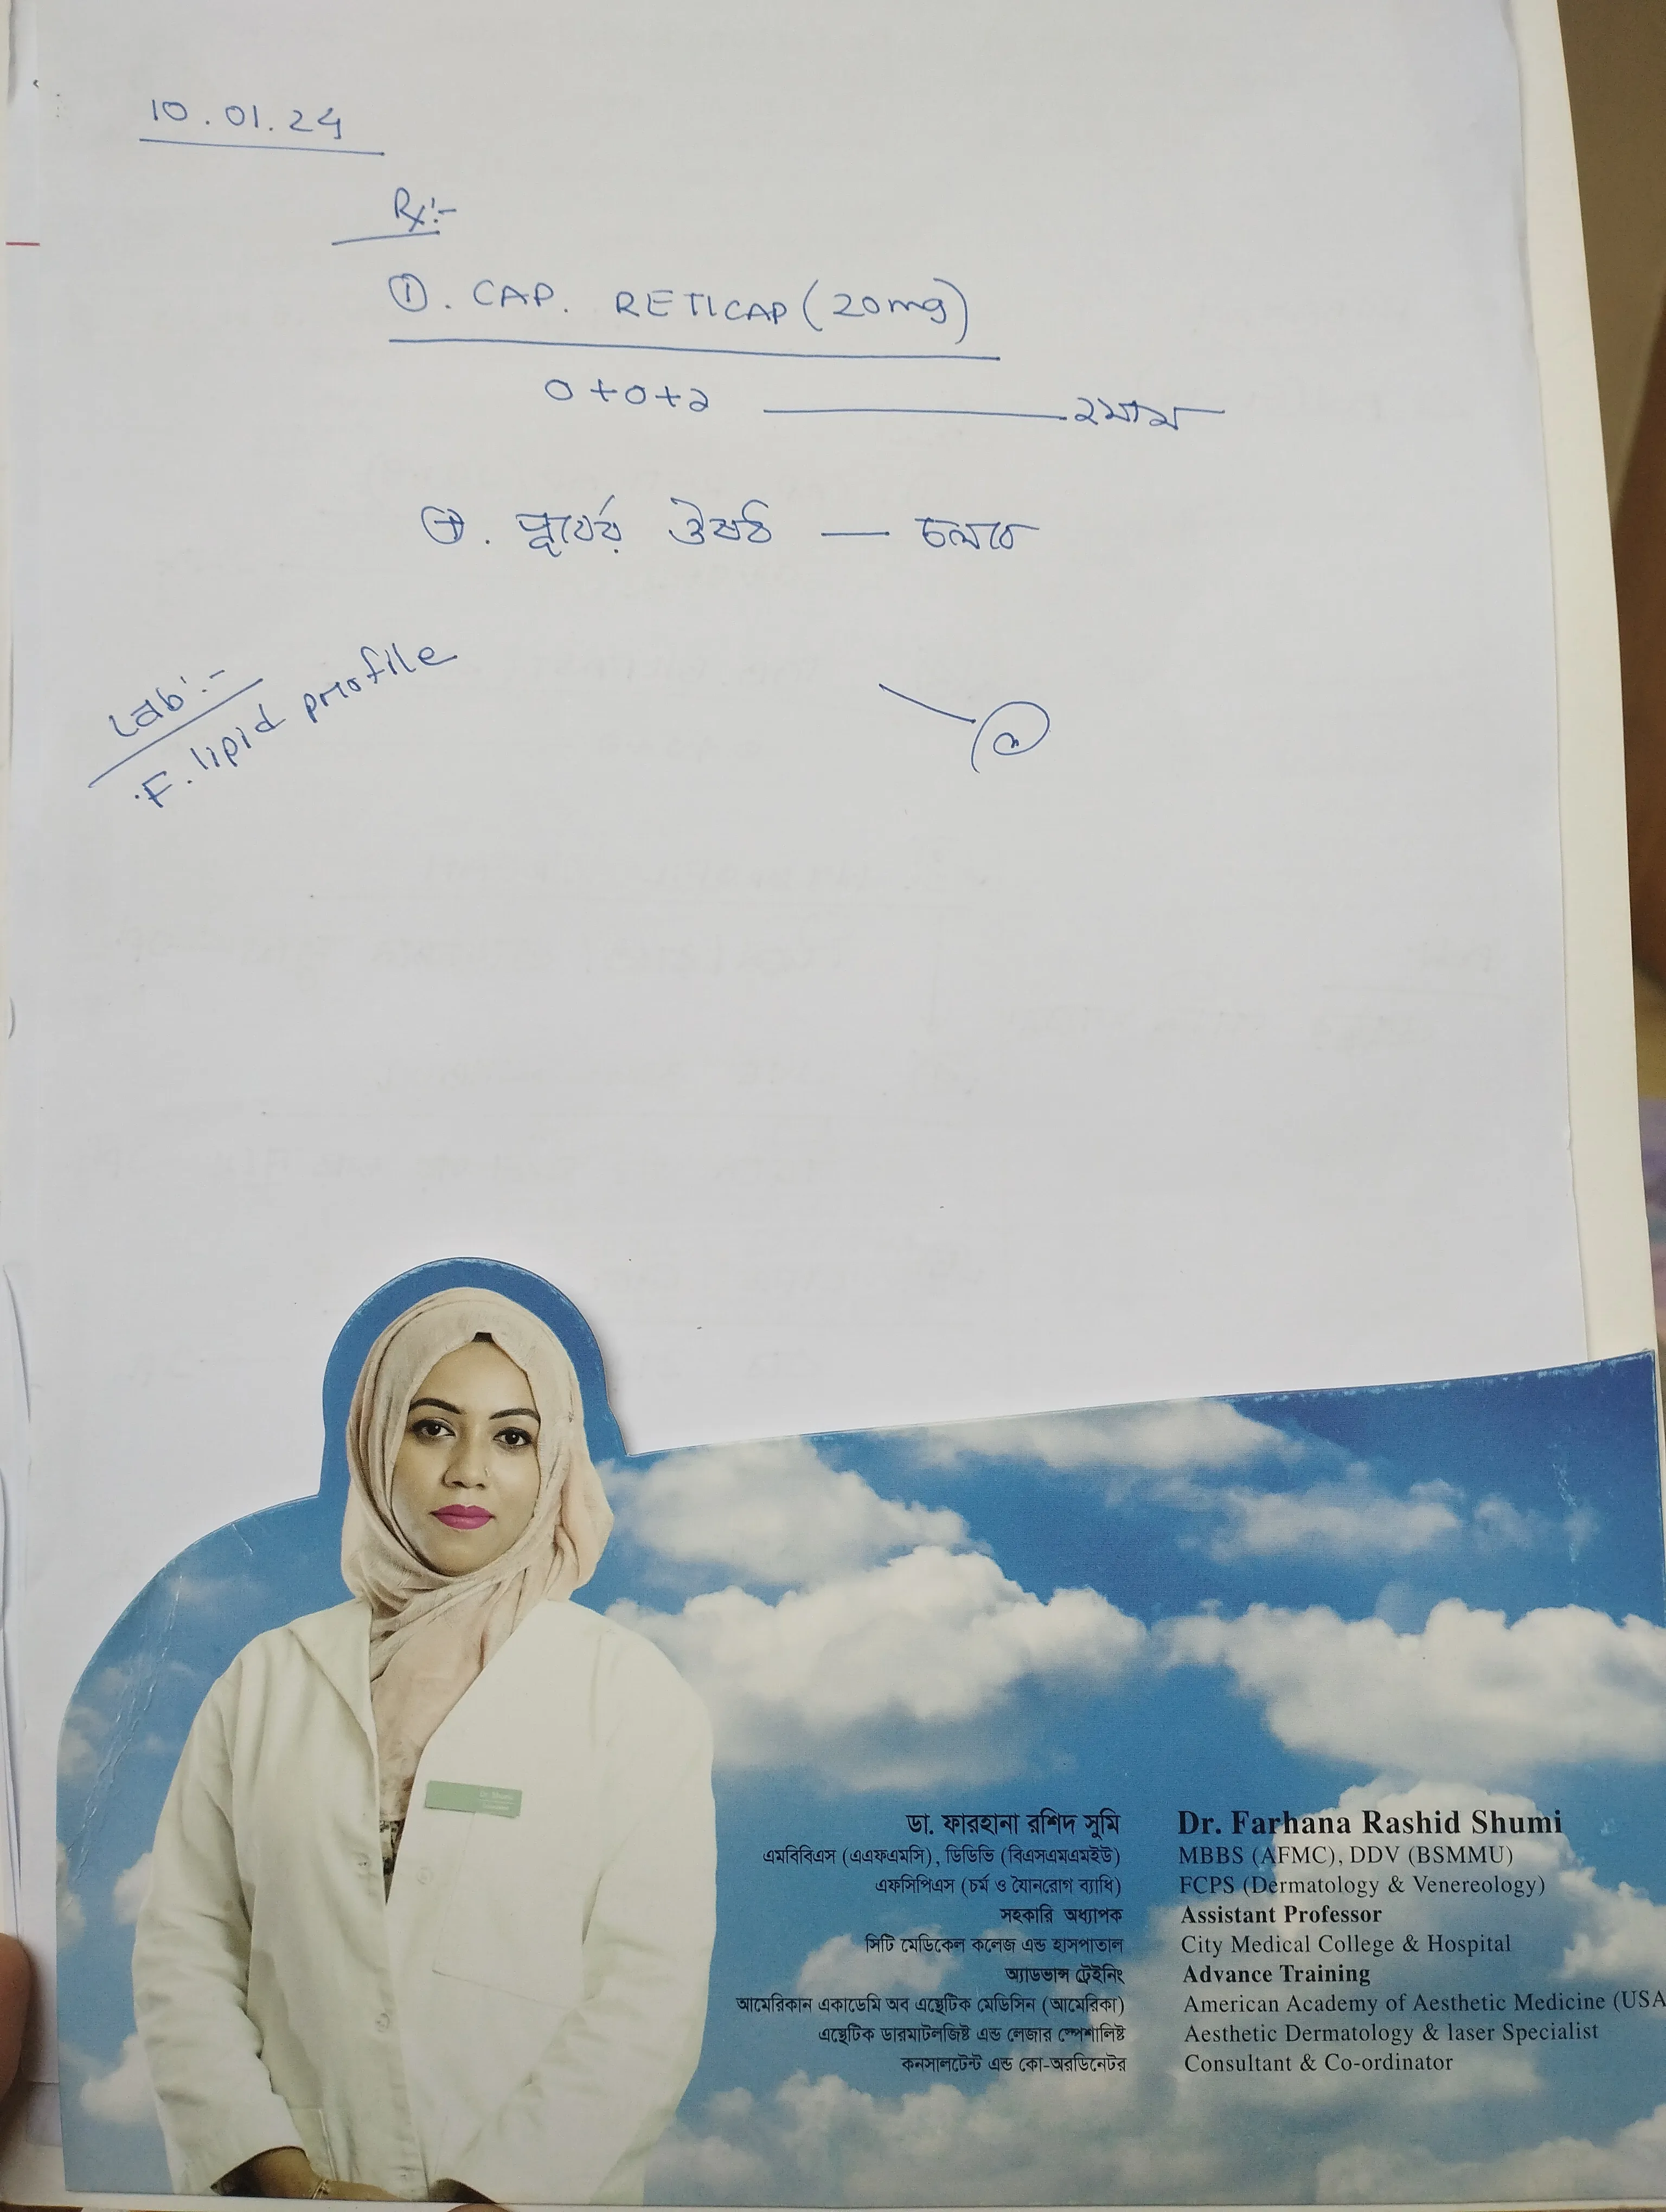 10.01.24
Rx:-
①. CAP. RETICAP (20mg)
০+০+২ — ২মাস
পূর্বের ঔষধ — চলবে
Lab:-
F. lipid profile
Dr. Shumi
ডা. ফারহানা রশিদ সুমি
এমবিবিএস (এএফএমসি), ডিডিভি (বিএসএমএমইউ)
এফসিপিএস (চর্ম ও যৌনরোগ ব্যাধি)
সহকারি অধ্যাপক
সিটি মেডিকেল কলেজ এন্ড হাসপাতাল
অ্যাডভান্স ট্রেইনিং
আমেরিকান একাডেমি অব এস্থেটিক মেডিসিন (আমেরিকা)
এস্থেটিক ডারমাটলজিষ্ট এন্ড লেজার স্পেশালিষ্ট
কনসালটেন্ট এন্ড কো-অরডিনেটর
Dr. Farhana Rashid Shumi
MBBS (AFMC), DDV (BSMMU)
FCPS (Dermatology & Venereology)
Assistant Professor
City Medical College & Hospital
Advance Training
American Academy of Aesthetic Medicine (USA
Aesthetic Dermatology & laser Specialist
Consultant & Co-ordinator